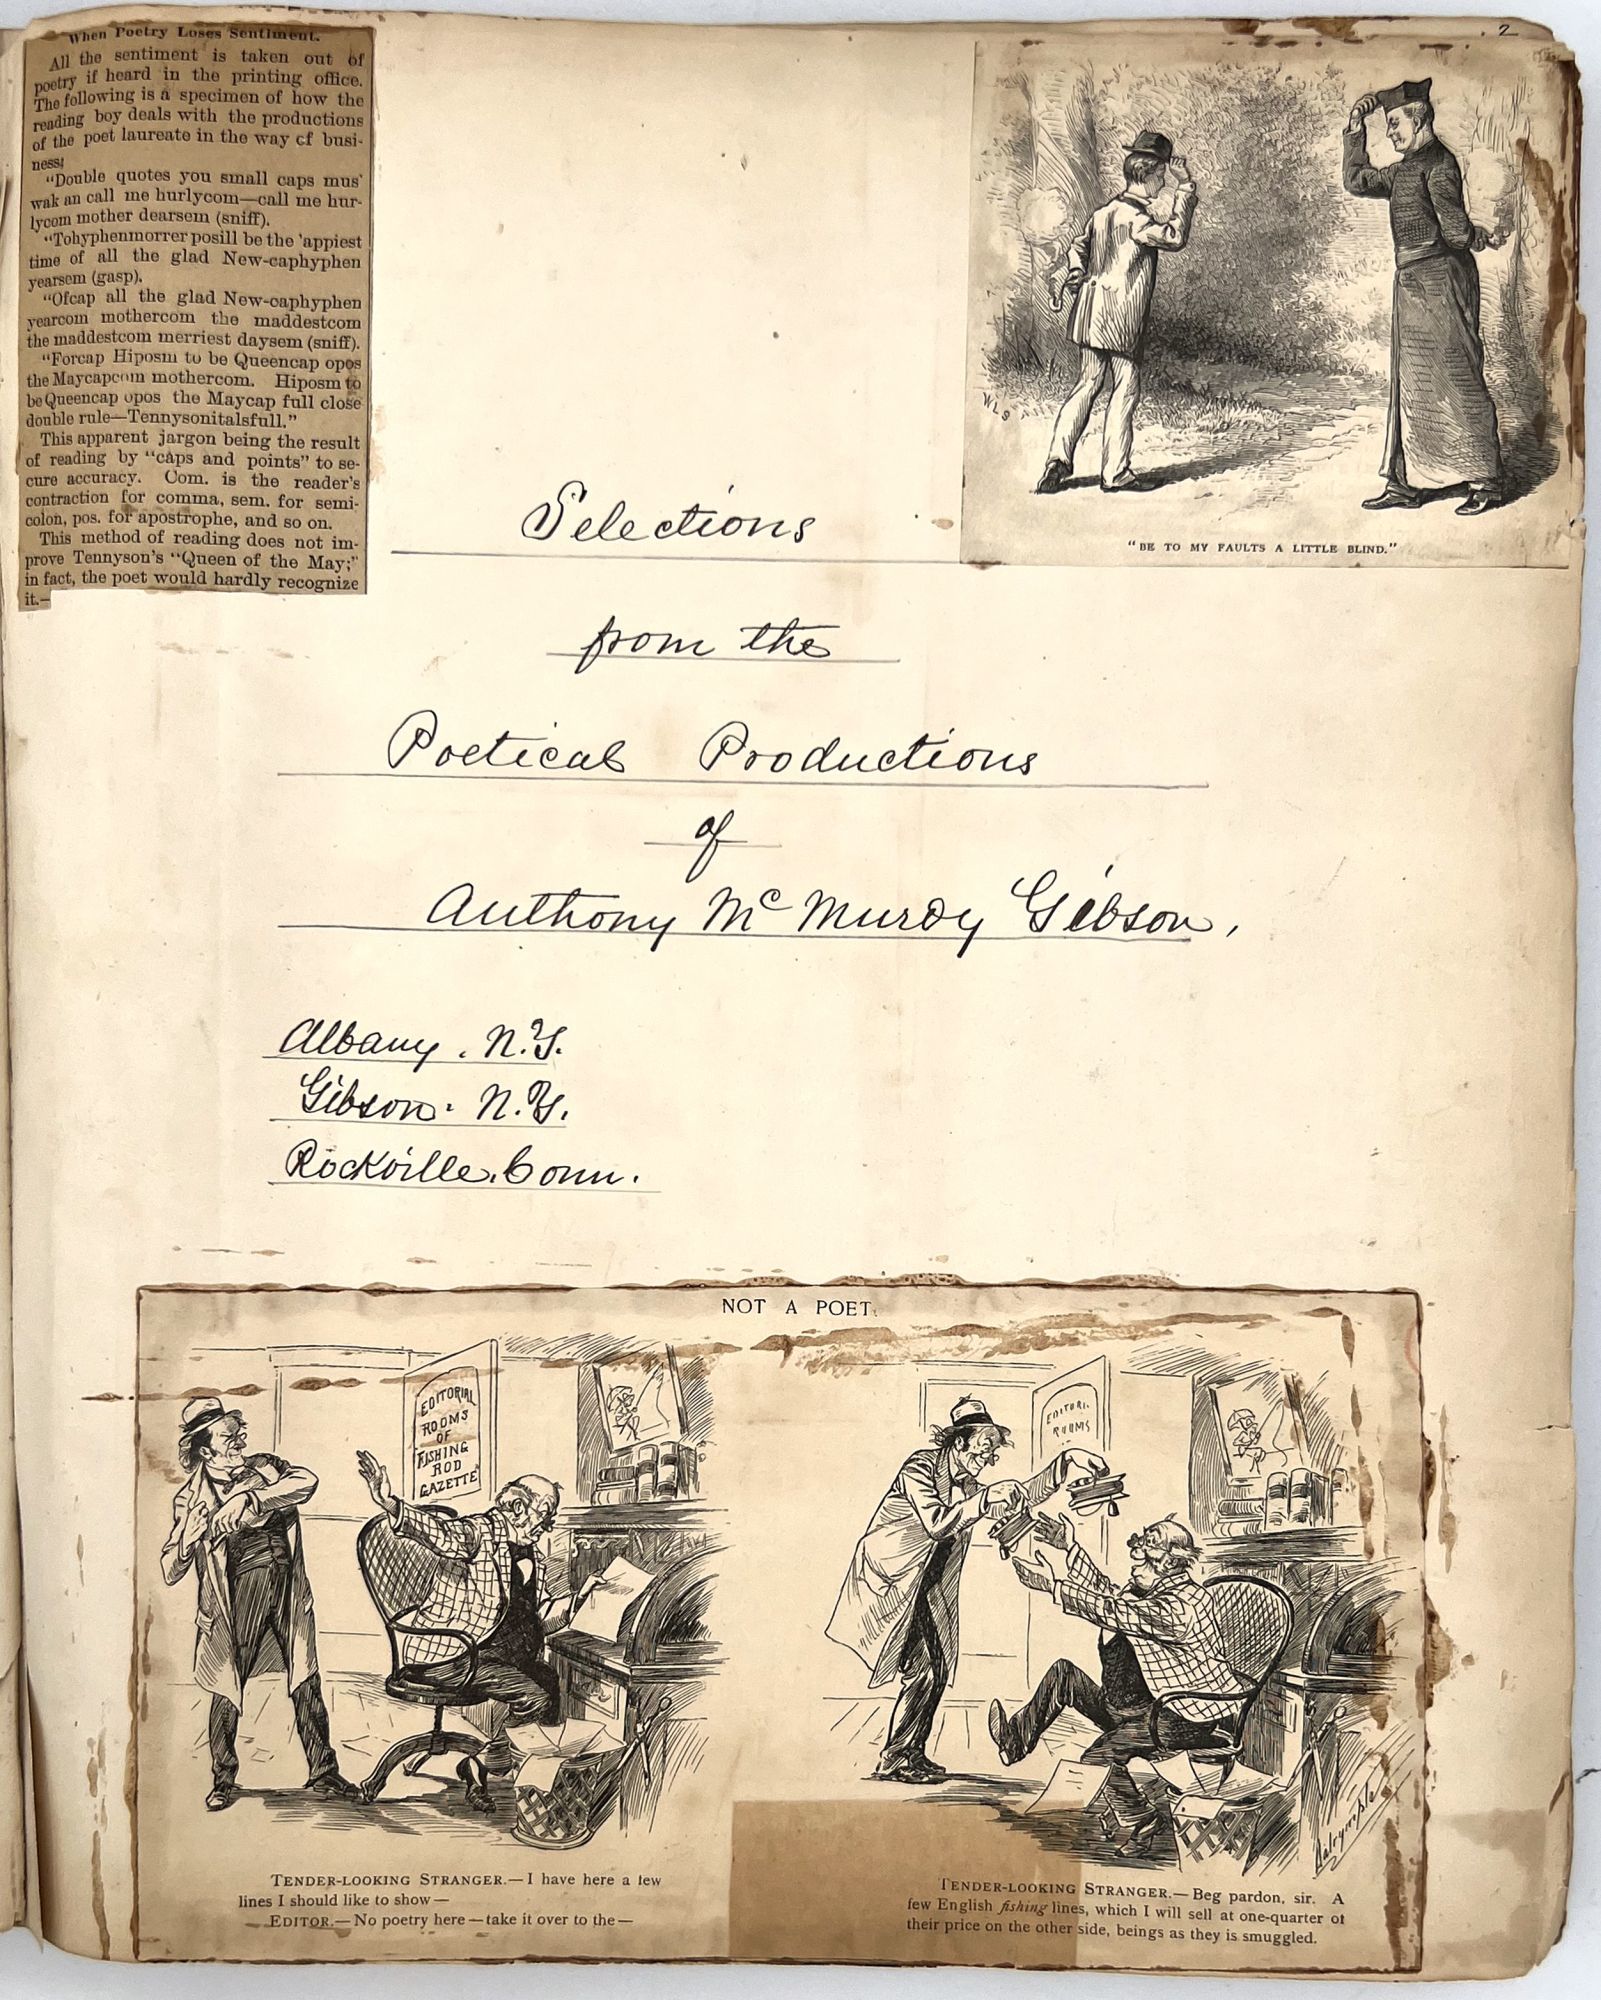 2
When Poetry Loses Sentiment.
All the sentiment is taken out of
poetry if heard in the printing office.
The following is a specimen of how the
reading boy deals with the productions
of the poet laureate in the way of busi-
ness:
"Double quotes you small caps mus'
wak an call me hurlycom—call me hur-
lycom mother dearsem (sniff).
"Tohyphenmorrer posill be the 'appiest
time of all the glad New-caphyphen
yearsem (gasp).
"Ofcap all the glad New-caphyphen
yearcom mothercom the maddestcom
the maddestcom merriest daysem (sniff).
"Forcap Hiposm to be Queencap opos
the Maycapcom mothercom. Hiposm to
be Queencap opos the Maycap full close
double rule—Tennysonitalsfull."
This apparent jargon being the result
of reading by "caps and points" to se-
cure accuracy. Com. is the reader's
contraction for comma, sem. for semi-
colon, pos. for apostrophe, and so on.
This method of reading does not im-
prove Tennyson's "Queen of the May;"
in fact, the poet would hardly recognize
it.—
WLS
"BE TO MY FAULTS A LITTLE BLIND."
Selections
from the
Poetical Productions
of
Anthony Mc Murdy Gibson,
Albany. N.Y.
Gibson. N.Y.
Rockville. Conn.
NOT A POET.
EDITORIAL
ROOMS
OF
FISHING
ROD
GAZETTE
EDITORI
ROOMS
Dalrymple
TENDER-LOOKING STRANGER.—I have here a few
lines I should like to show—
EDITOR.—No poetry here—take it over to the—
TENDER-LOOKING STRANGER.—Beg pardon, sir. A
few English fishing lines, which I will sell at one-quarter of
their price on the other side, beings as they is smuggled.